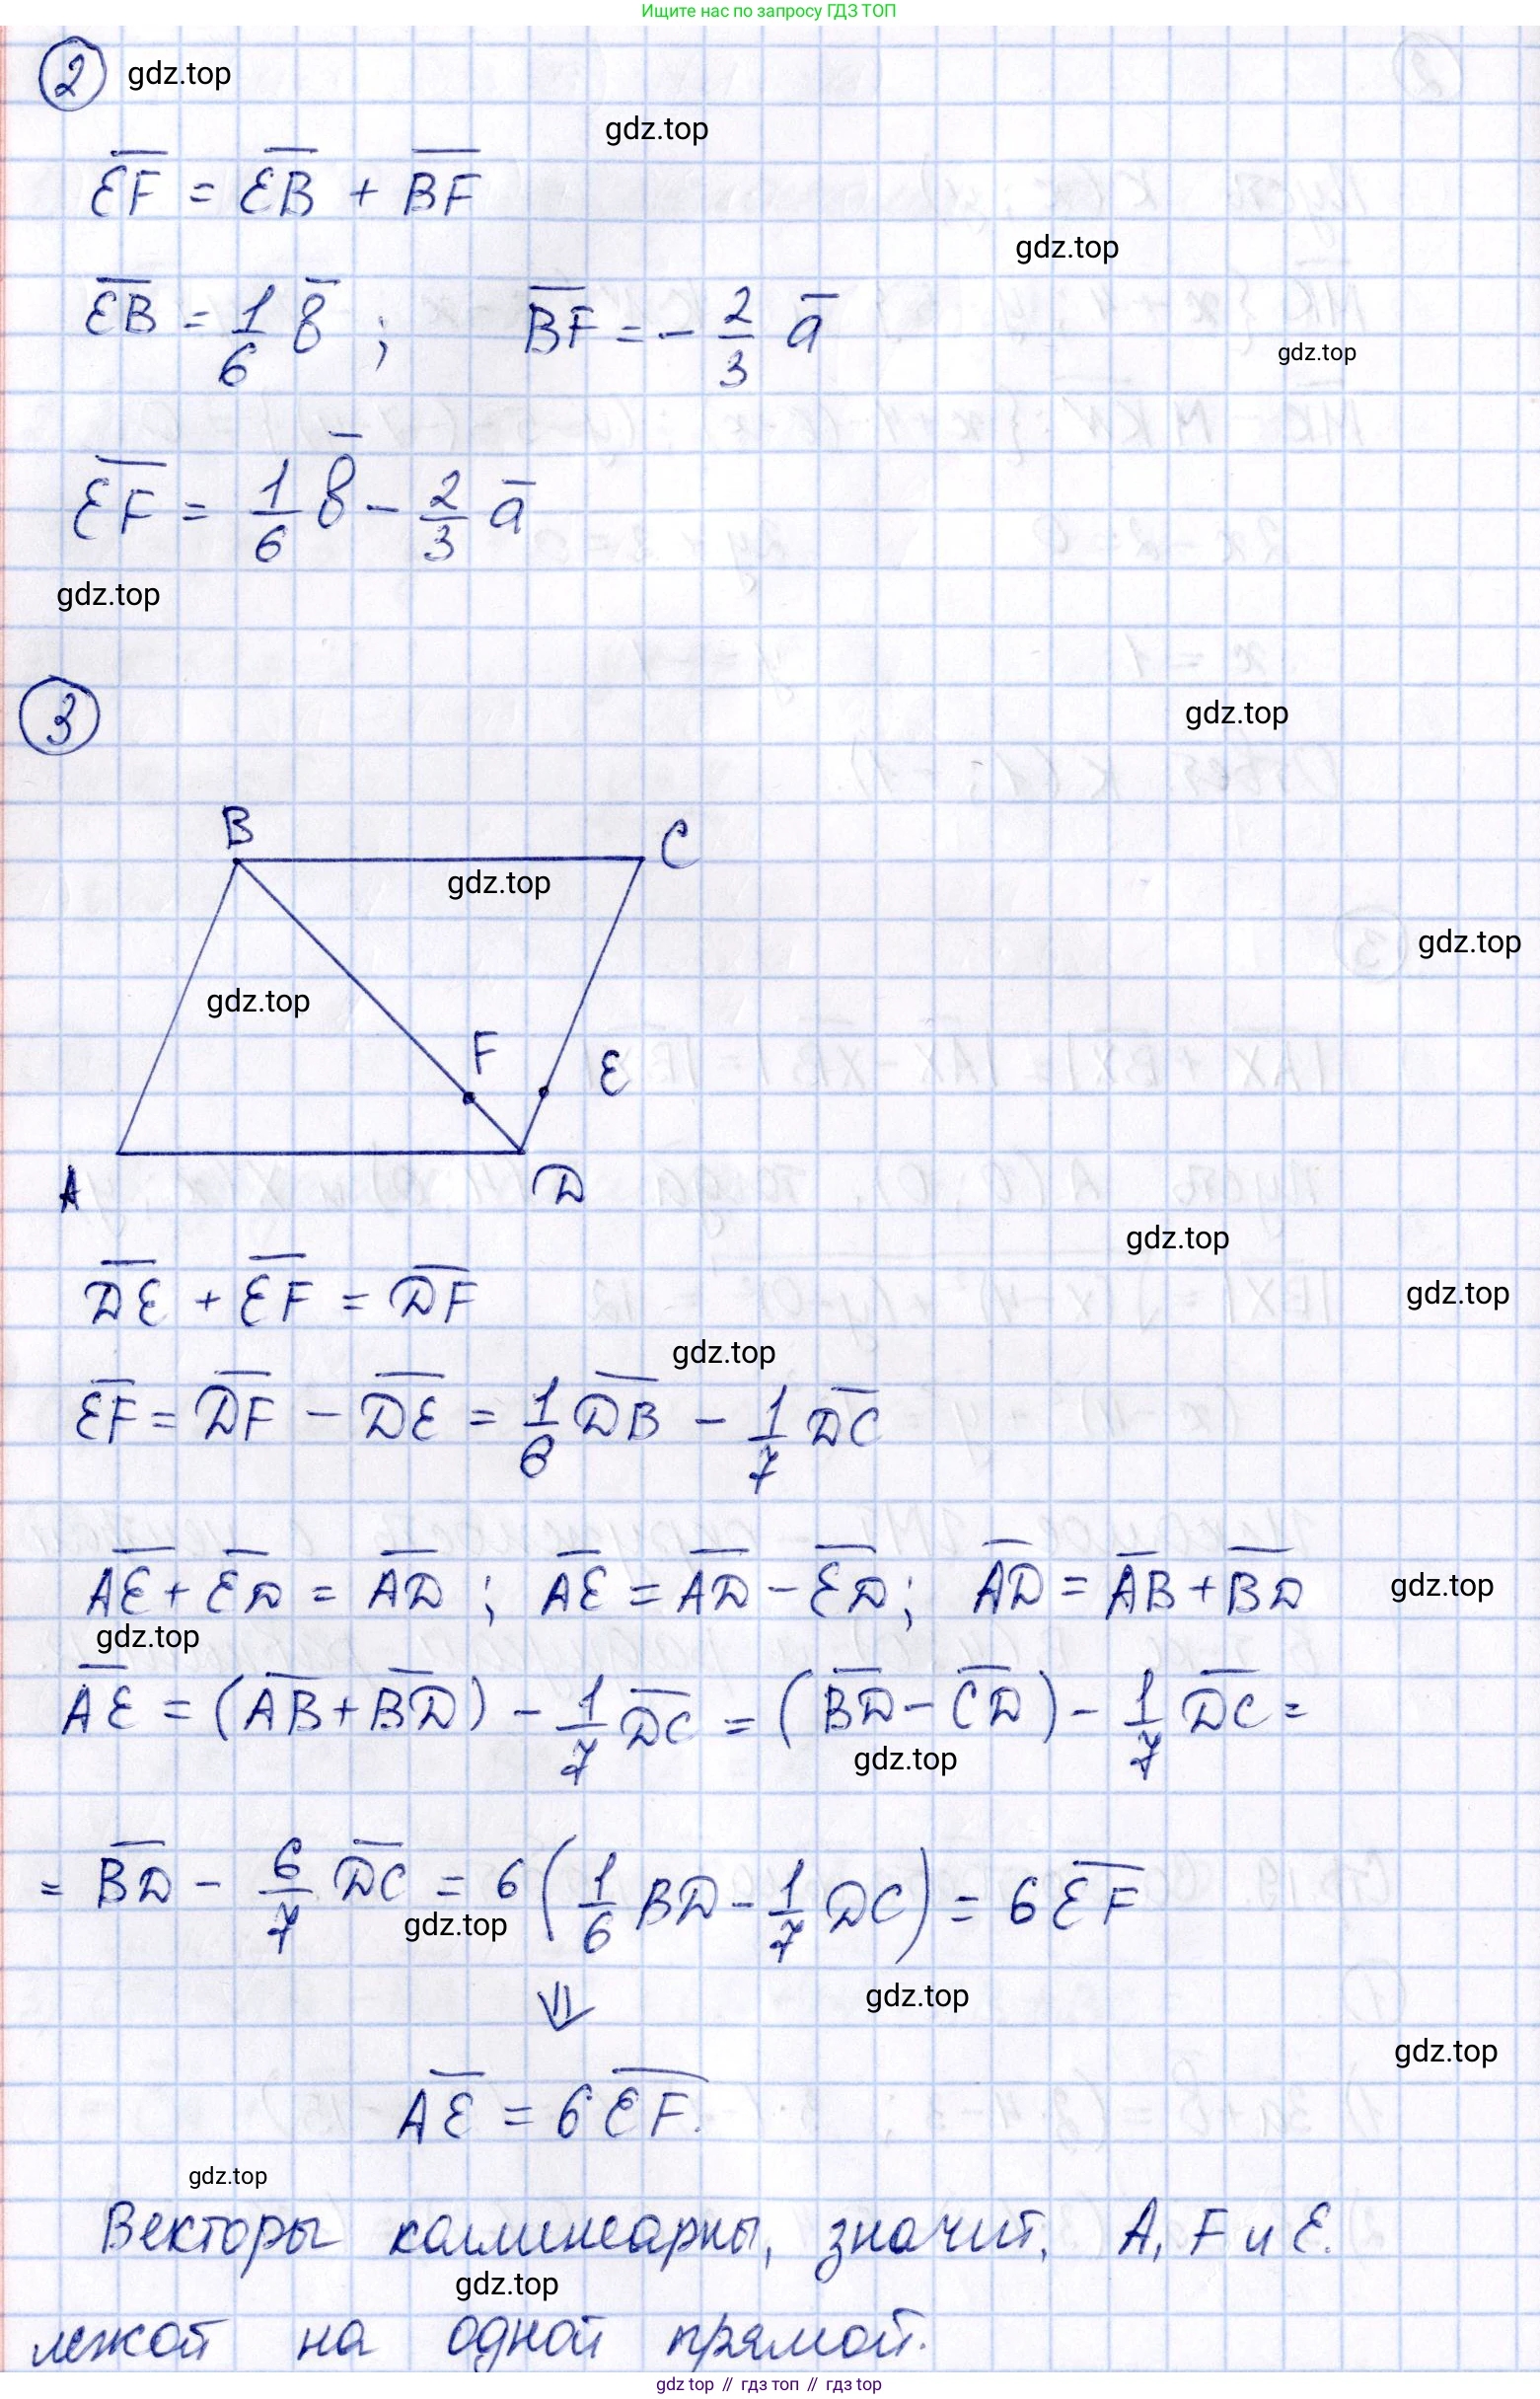 Ищите нас по запросу ГДЗ ТОП
2 gdz.top
gdz.top
EF = EB + BF
gdz.top
EB = 1/6 b ; BF = - 2/3 a
gdz.top
EF = 1/6 b - 2/3 a
gdz.top
3
gdz.top
B C
gdz.top
gdz.top
gdz.top
F E
A D
gdz.top
DE + EF = DF
gdz.top
gdz.top
EF = DF - DE = 1/6 DB - 1/7 DC
AE + ED = AD ; AE = AD - ED ; AD = AB + BD
gdz.top
gdz.top
AE = (AB + BD) - 1/7 DC = (BD - CD) - 1/7 DC =
gdz.top
= BD - 6/7 DC = 6 (1/6 BD - 1/7 DC) = 6 EF
gdz.top
⇓
gdz.top
gdz.top
AE = 6 EF.
gdz.top
Векторы коллинеарны, значит, A, F и E.
gdz.top
лежат на одной прямой.
gdz.top // гдз топ // гдз top